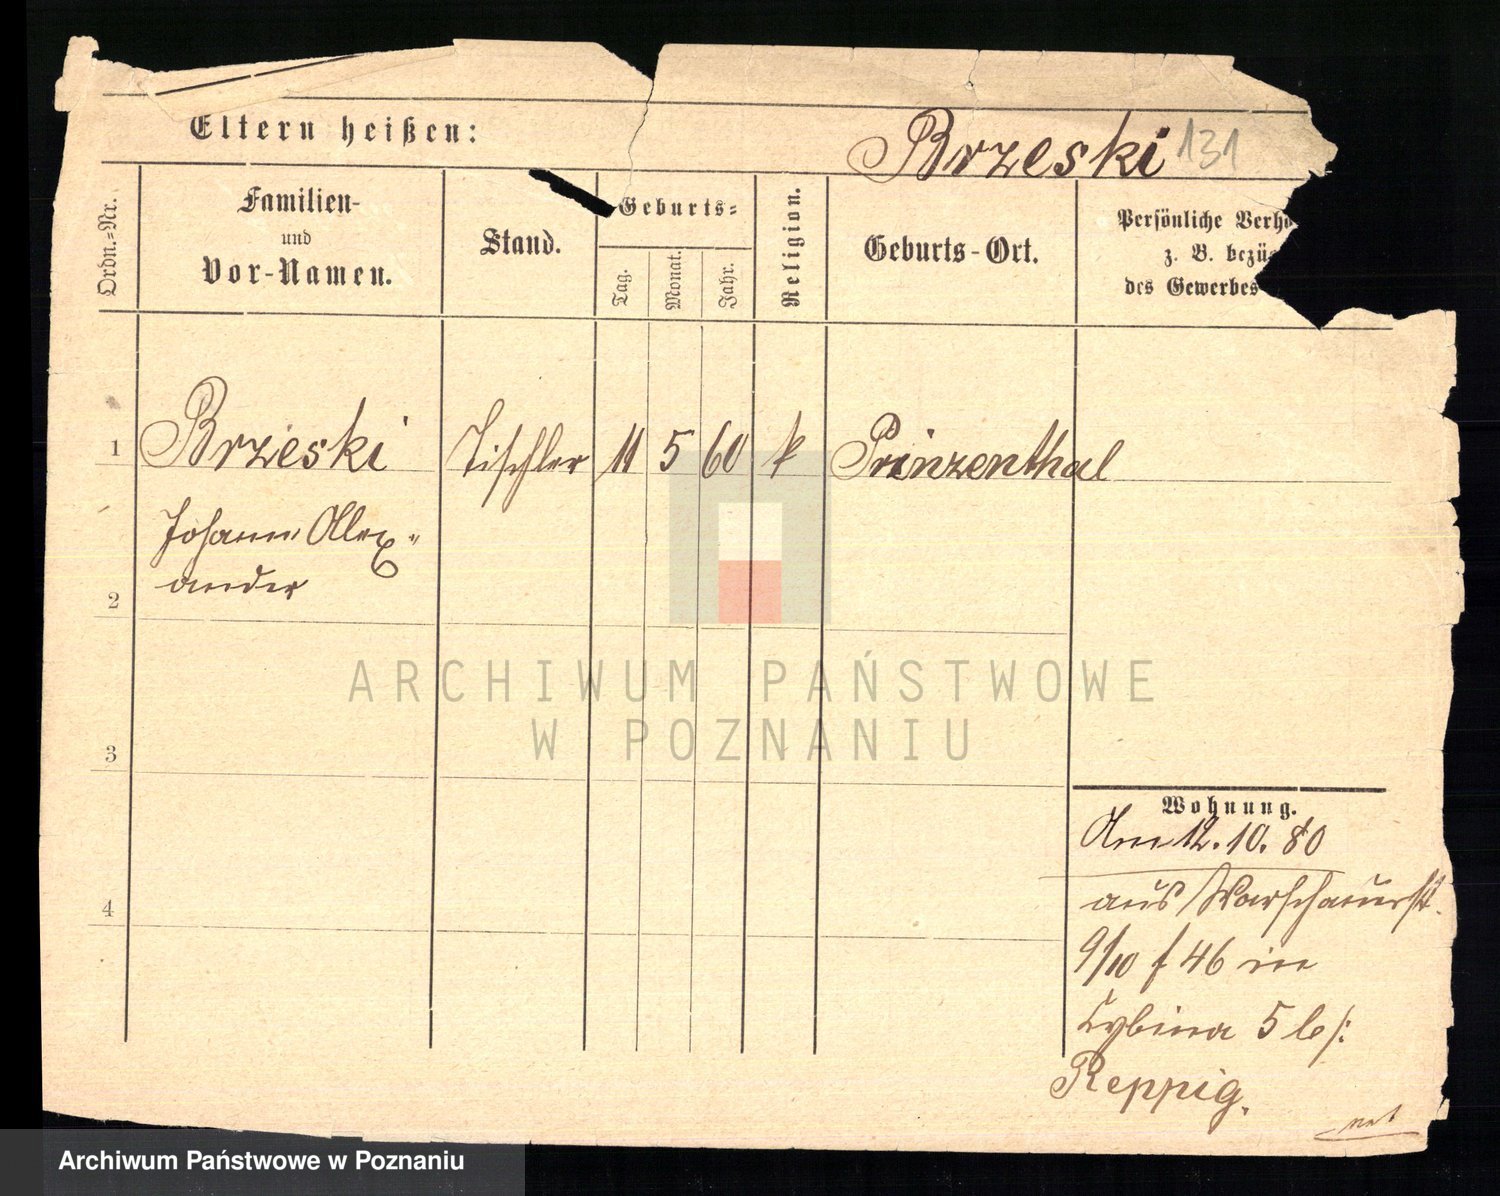 Eltern heißen:
Brzeski 131
Ordn.=Nr.
Familien-
und
Vor-Namen.
Stand.
Geburts=
Tag.
Monat.
Jahr.
Religion.
Geburts-Ort.
Persönliche Verhä
z. B. bezüg
des Gewerbes
1 Brzeski Tischler 11 5 60 k Prinzenthal
Johann Alex=
2 ander
3
4
Wohnung.
Am 12.10.80
aus Warschauerst.
9/10 f 46 in
Cybina 5 b/:
Reppig.
ARCHIWUM PAŃSTWOWE
W POZNANIU
Archiwum Państwowe w Poznaniu